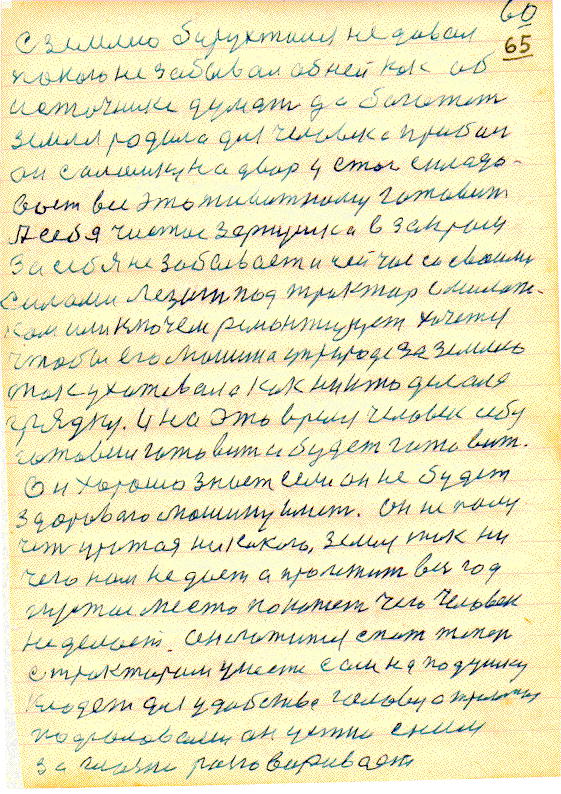 60
65
С Землею барухтался не давал
покою не забывал об ней как об
источнике думат да богатет
земля родила для человека прибыл
он соломку на двор у стог складо-
вает все это животному готовит
А себя чистое зернушка в закрому
За себя не забывает и сейчас со своими
силами лезит под трактар с молот-
ком или ключем ремонтирует хочется
чтобы его машина уприроде за землею
так ухаживала как никто делала
грядку. И на это время человек себе
готовил готовит и будет готовит.
Он хорошо знает если он не будет
здорового машину имет. Он не полу
чит урожая никакого, земля так ни
чего нам не дает а пролежит вы год
пустое место покажет чего человек
не делает. Он ложится спат топер
с трактарам уместе сам на подушку
кладет для удобства голову
он устно с ним
за глазно разговаривает